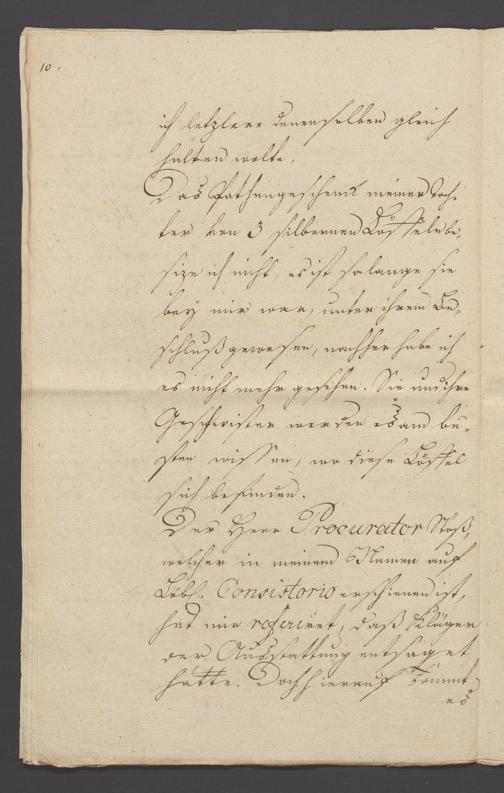 10.
ich letztere denenselben gleich
halten wolte.
Das Pathengeschenk meiner Toch-
ter von 3 silbernen Löffeln be-
size ich nicht, es ist solange sie
bey mir war, unter ihrem Be-
schluß gewesen, nachher habe ich
es nicht mehr gesehen. Sie und ihre
Geschwister werden es am be-
sten wissen, wo diese Löffel
sich befinden.
Der Herr Procurator Stoß,
welcher in meinem Namen auf
Löbl. Consistorio erschienen ist,
hat mir referiret, daß Kläger
der Ausstattung entsaget
hätte. Doch hierauf kömmt
es